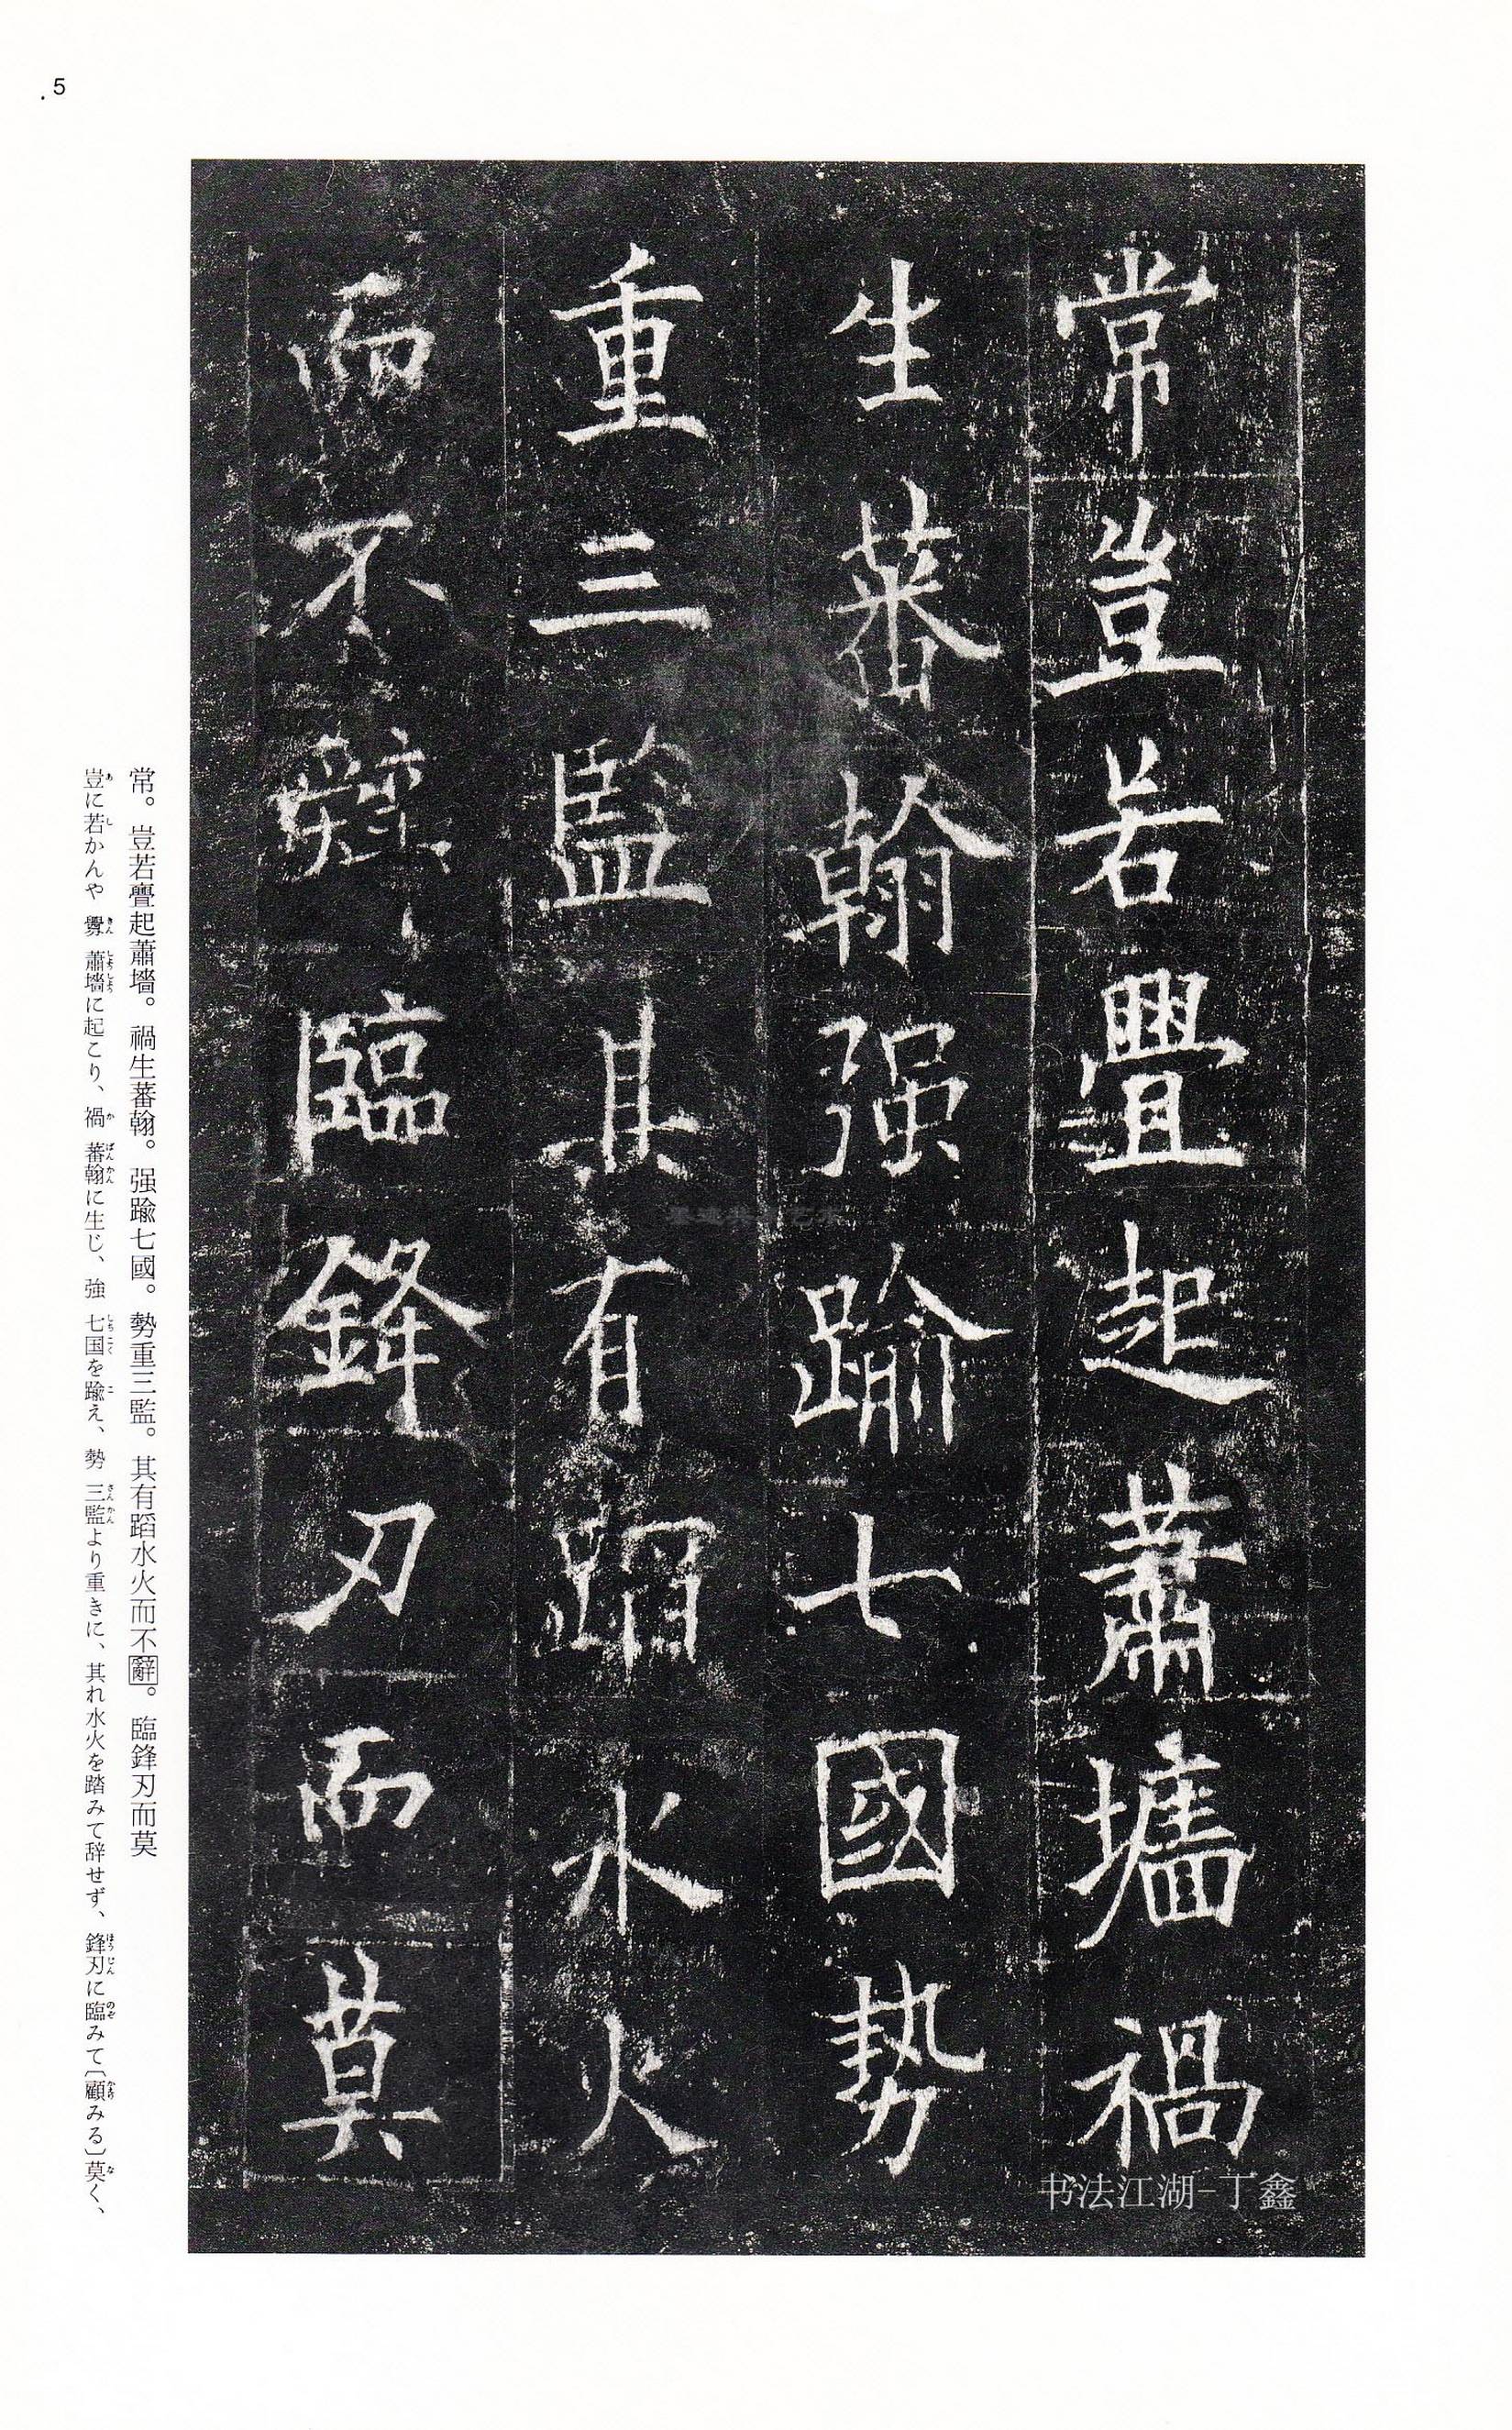 5
常豈若舋起蕭墻禍
生蕃翰强踰七國勢
重三監其有蹈水火
而不辭臨鋒刃而莫
常。豈若舋起蕭墻。禍生蕃翰。强踰七國。勢重三監。其有蹈水火而不辭。臨鋒刃而莫
豈に若かんや 釁 蕭墻に起こり、禍 蕃翰に生じ、強 七国を踰え、勢 三監より重きに、其れ水火を踏みて辞せず、鋒刃に臨みて〔顧みる〕莫く、
书法江湖-丁鑫